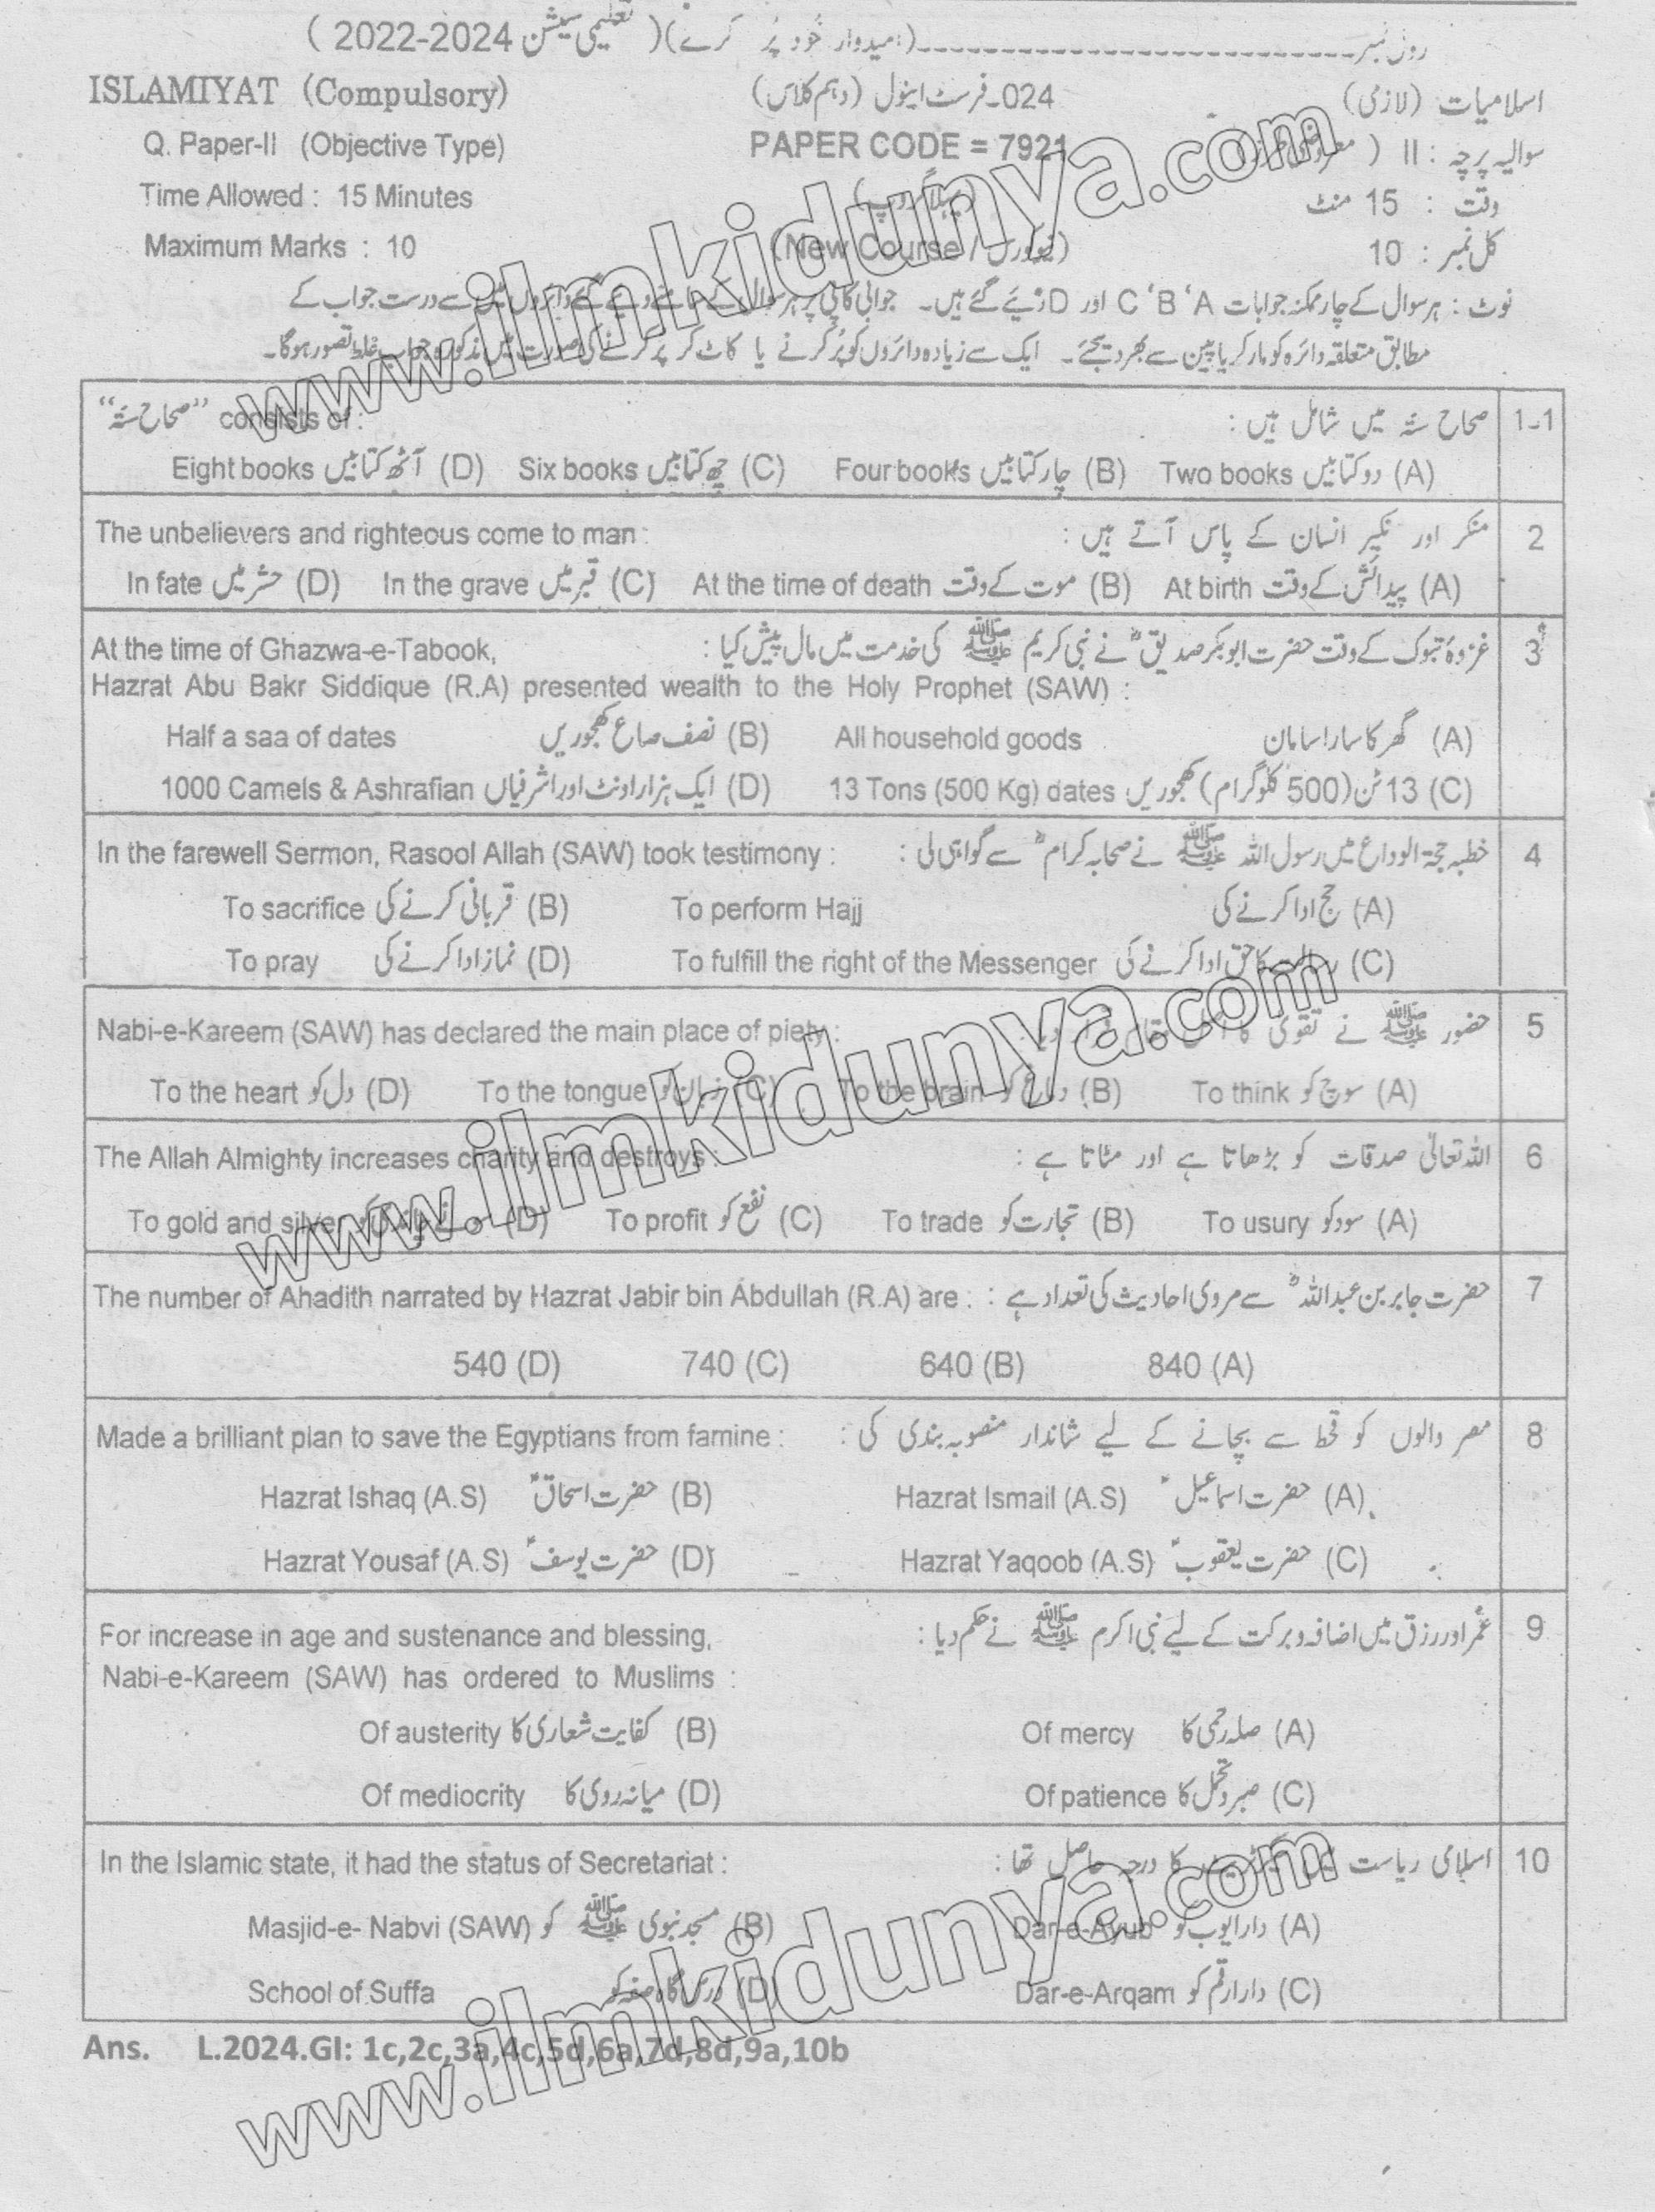 رول نمبر ـــــــــ (امیدوار خود پُر کرے) ( تعلیمی سیشن 2022-2024 )
ISLAMIYAT (Compulsory) 024۔فرسٹ اینول (دہم کلاس) اسلامیات (لازمی)
Q. Paper-II (Objective Type) PAPER CODE = 7921 سوالیہ پرچہ : II (
Time Allowed : 15 Minutes (پہلا گروپ) وقت : 15 منٹ
Maximum Marks : 10 (New Course / نیو کورس) کل نمبر : 10
نوٹ : ہر سوال کے چار ممکنہ جوابات C ‘B ‘A اور D دئیے گئے ہیں۔ جوابی کاپی پر ہر سوال کے سامنے دیے گئے دائروں میں سے درست جواب کے
مطابق متعلقہ دائرہ کو مارکر یا پین سے بھر دیجئے۔ ایک سے زیادہ دائروں کو پُر کرنے یا کاٹ کر پر کرنے کی صورت میں مذکورہ جواب غلط تصور ہوگا۔
1۔1 صحاح ستہ میں شامل ہیں : “صحاح ستہ” consists of :
(A) دو کتابیں Two books (B) چار کتابیں Four books (C) چھ کتابیں Six books (D) آٹھ کتابیں Eight books
2 منکر اور نکیر انسان کے پاس آتے ہیں : The unbelievers and righteous come to man :
(A) پیدائش کے وقت At birth (B) موت کے وقت At the time of death (C) قبر میں In the grave (D) حشر میں In fate
3 غزوۂ تبوک کے وقت حضرت ابوبکر صدیقؓ نے نبی کریم ﷺ کی خدمت میں مال پیش کیا : At the time of Ghazwa-e-Tabook,
Hazrat Abu Bakr Siddique (R.A) presented wealth to the Holy Prophet (SAW) :
(A) گھر کا سارا سامان All household goods (B) نصف صاع کھجوریں Half a saa of dates
(C) 13 ٹن (500 کلوگرام) کھجوریں 13 Tons (500 Kg) dates (D) ایک ہزار اونٹ اور اشرفیاں 1000 Camels & Ashrafian
4 خطبہ حجۃ الوداع میں رسول اللہ ﷺ نے صحابہ کرامؓ سے گواہی لی : In the farewell Sermon, Rasool Allah (SAW) took testimony :
(A) حج ادا کرنے کی To perform Hajj (B) قربانی کرنے کی To sacrifice
(C) رسالت کا حق ادا کرنے کی To fulfill the right of the Messenger (D) نماز ادا کرنے کی To pray
5 حضور ﷺ نے تقویٰ کا Nabi-e-Kareem (SAW) has declared the main place of piety :
(A) سوچ کو To think (B) دماغ کو To the brain (C) زبان کو To the tongue (D) دل کو To the heart
6 اللہ تعالیٰ صدقات کو بڑھاتا ہے اور مٹاتا ہے : The Allah Almighty increases charity and destroys :
(A) سود کو To usury (B) تجارت کو To trade (C) نفع کو To profit (D) To gold and silver
7 حضرت جابر بن عبداللہؓ سے مروی احادیث کی تعداد ہے : The number of Ahadith narrated by Hazrat Jabir bin Abdullah (R.A) are :
840 (A) 640 (B) 740 (C) 540 (D)
8 مصر والوں کو قحط سے بچانے کے لیے شاندار منصوبہ بندی کی : Made a brilliant plan to save the Egyptians from famine :
(A) حضرت اسماعیلؑ Hazrat Ismail (A.S) (B) حضرت اسحاقؑ Hazrat Ishaq (A.S)
(C) حضرت یعقوبؑ Hazrat Yaqoob (A.S) (D) حضرت یوسفؑ Hazrat Yousaf (A.S)
9 عمر اور رزق میں اضافہ و برکت کے لیے نبی اکرم ﷺ نے حکم دیا : For increase in age and sustenance and blessing,
Nabi-e-Kareem (SAW) has ordered to Muslims :
(A) صلہ رحمی کا Of mercy (B) کفایت شعاری کا Of austerity
(C) صبر و تحمل کا Of patience (D) میانہ روی کا Of mediocrity
10 اسلامی ریاست کا درجہ حاصل تھا : In the Islamic state, it had the status of Secretariat :
(A) دار ایوب کو Dar-e-Ayub (B) مسجد نبوی ﷺ کو Masjid-e- Nabvi (SAW)
(C) دار ارقم کو Dar-e-Arqam (D) درس گاہ صفہ کو School of Suffa
Ans. L.2024.GI: 1c,2c,3a,4c,5d,6a,7d,8d,9a,10b
www.ilmkidunya.com
www.ilmkidunya.com
www.ilmkidunya.com